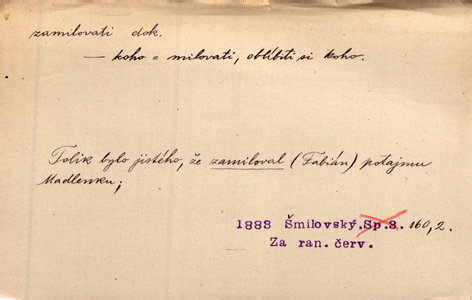 zamilovati dok.
— koho = milovati, oblíbiti si koho.
Tolik bylo jistého, že zamiloval (Fabián) potajmu
Madlenku;
1883 Šmilovský, Sp. 3. 160, 2.
Za ran. červ.